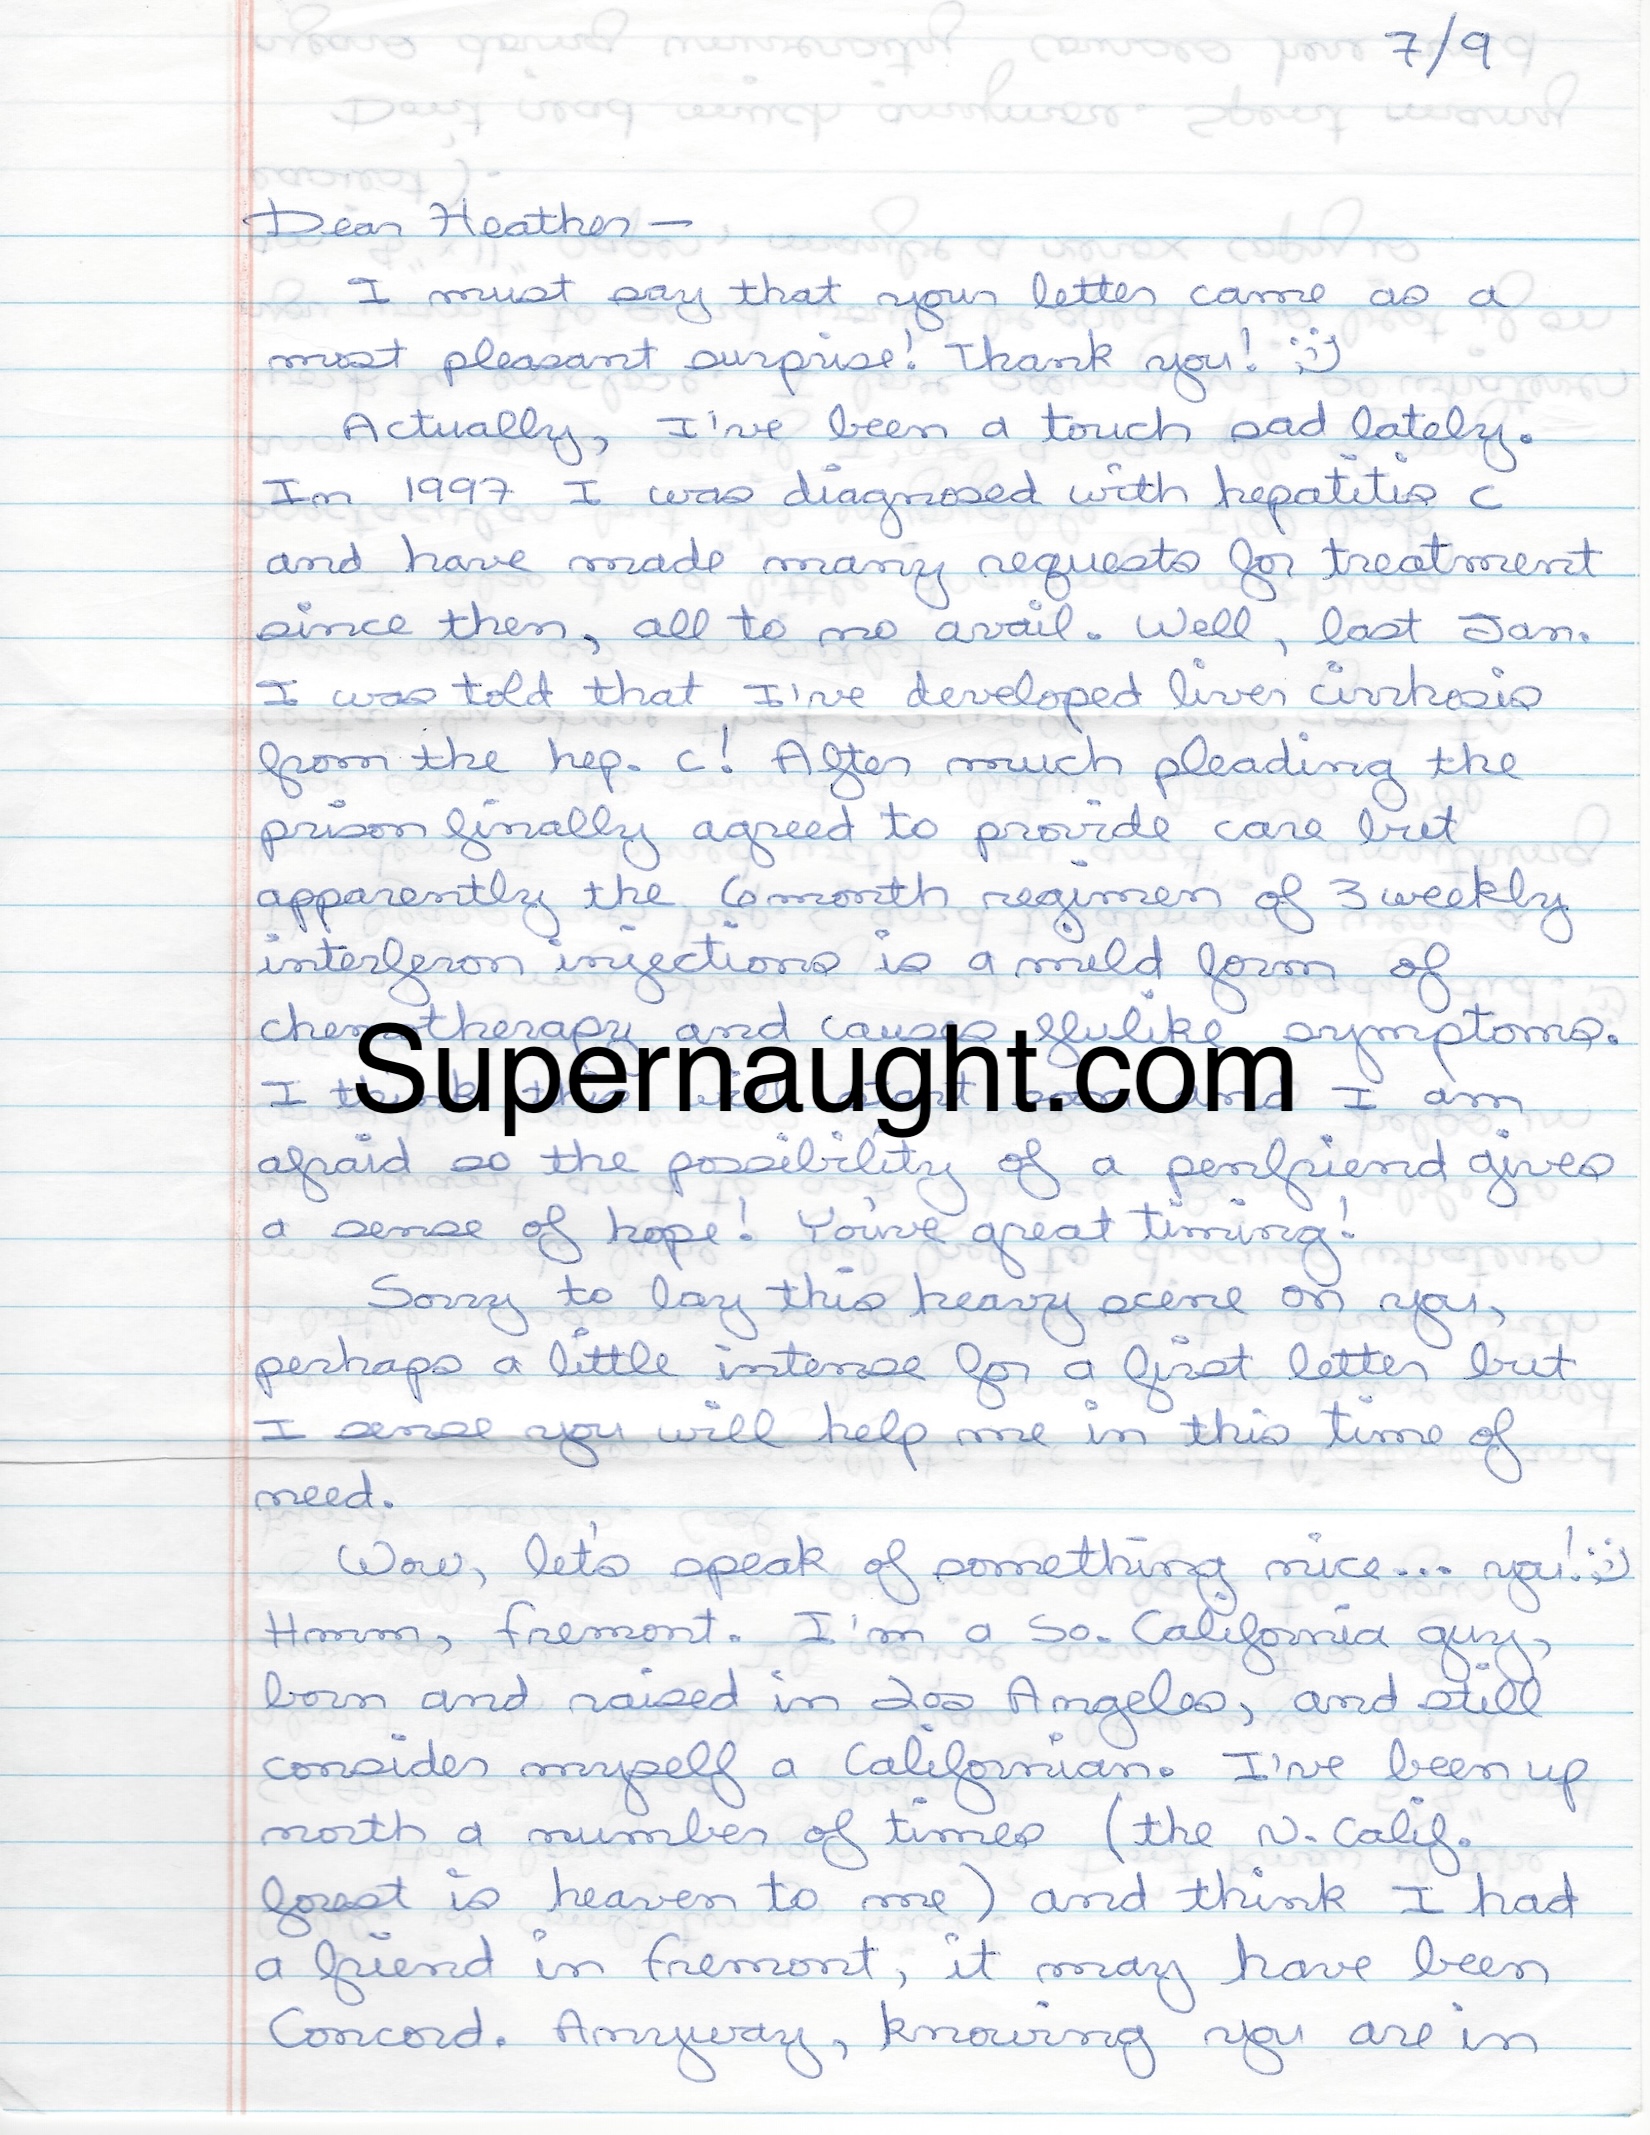 7/9
Dear Heather —
I must say that your letter came as a
most pleasant surprise! Thank you! :)
Actually, I've been a touch sad lately.
In 1997 I was diagnosed with hepatitis c
and have made many requests for treatment
since then, all to no avail. Well, last Jan.
I was told that I've developed liver cirrhosis
from the hep. c! After much pleading the
prison finally agreed to provide care but
apparently the 6 month regimen of 3 weekly
interferon injections is a mild form of
chemotherapy and causes flulike symptoms.
Supernaught.com
I think this will start soon and I am
afraid so the possibility of a penfriend gives
a sense of hope! You've great timing!
Sorry to lay this heavy scene on you,
perhaps a little intense for a first letter but
I sense you will help me in this time of
need.
Wow, let's speak of something nice... you! :)
Hmm, Fremont. I'm a So. California guy,
born and raised in Los Angeles, and still
consider myself a Californian. I've been up
north a number of times (the N. Calif.
forest is heaven to me) and think I had
a friend in Fremont, it may have been
Concord. Anyway, knowing you are in